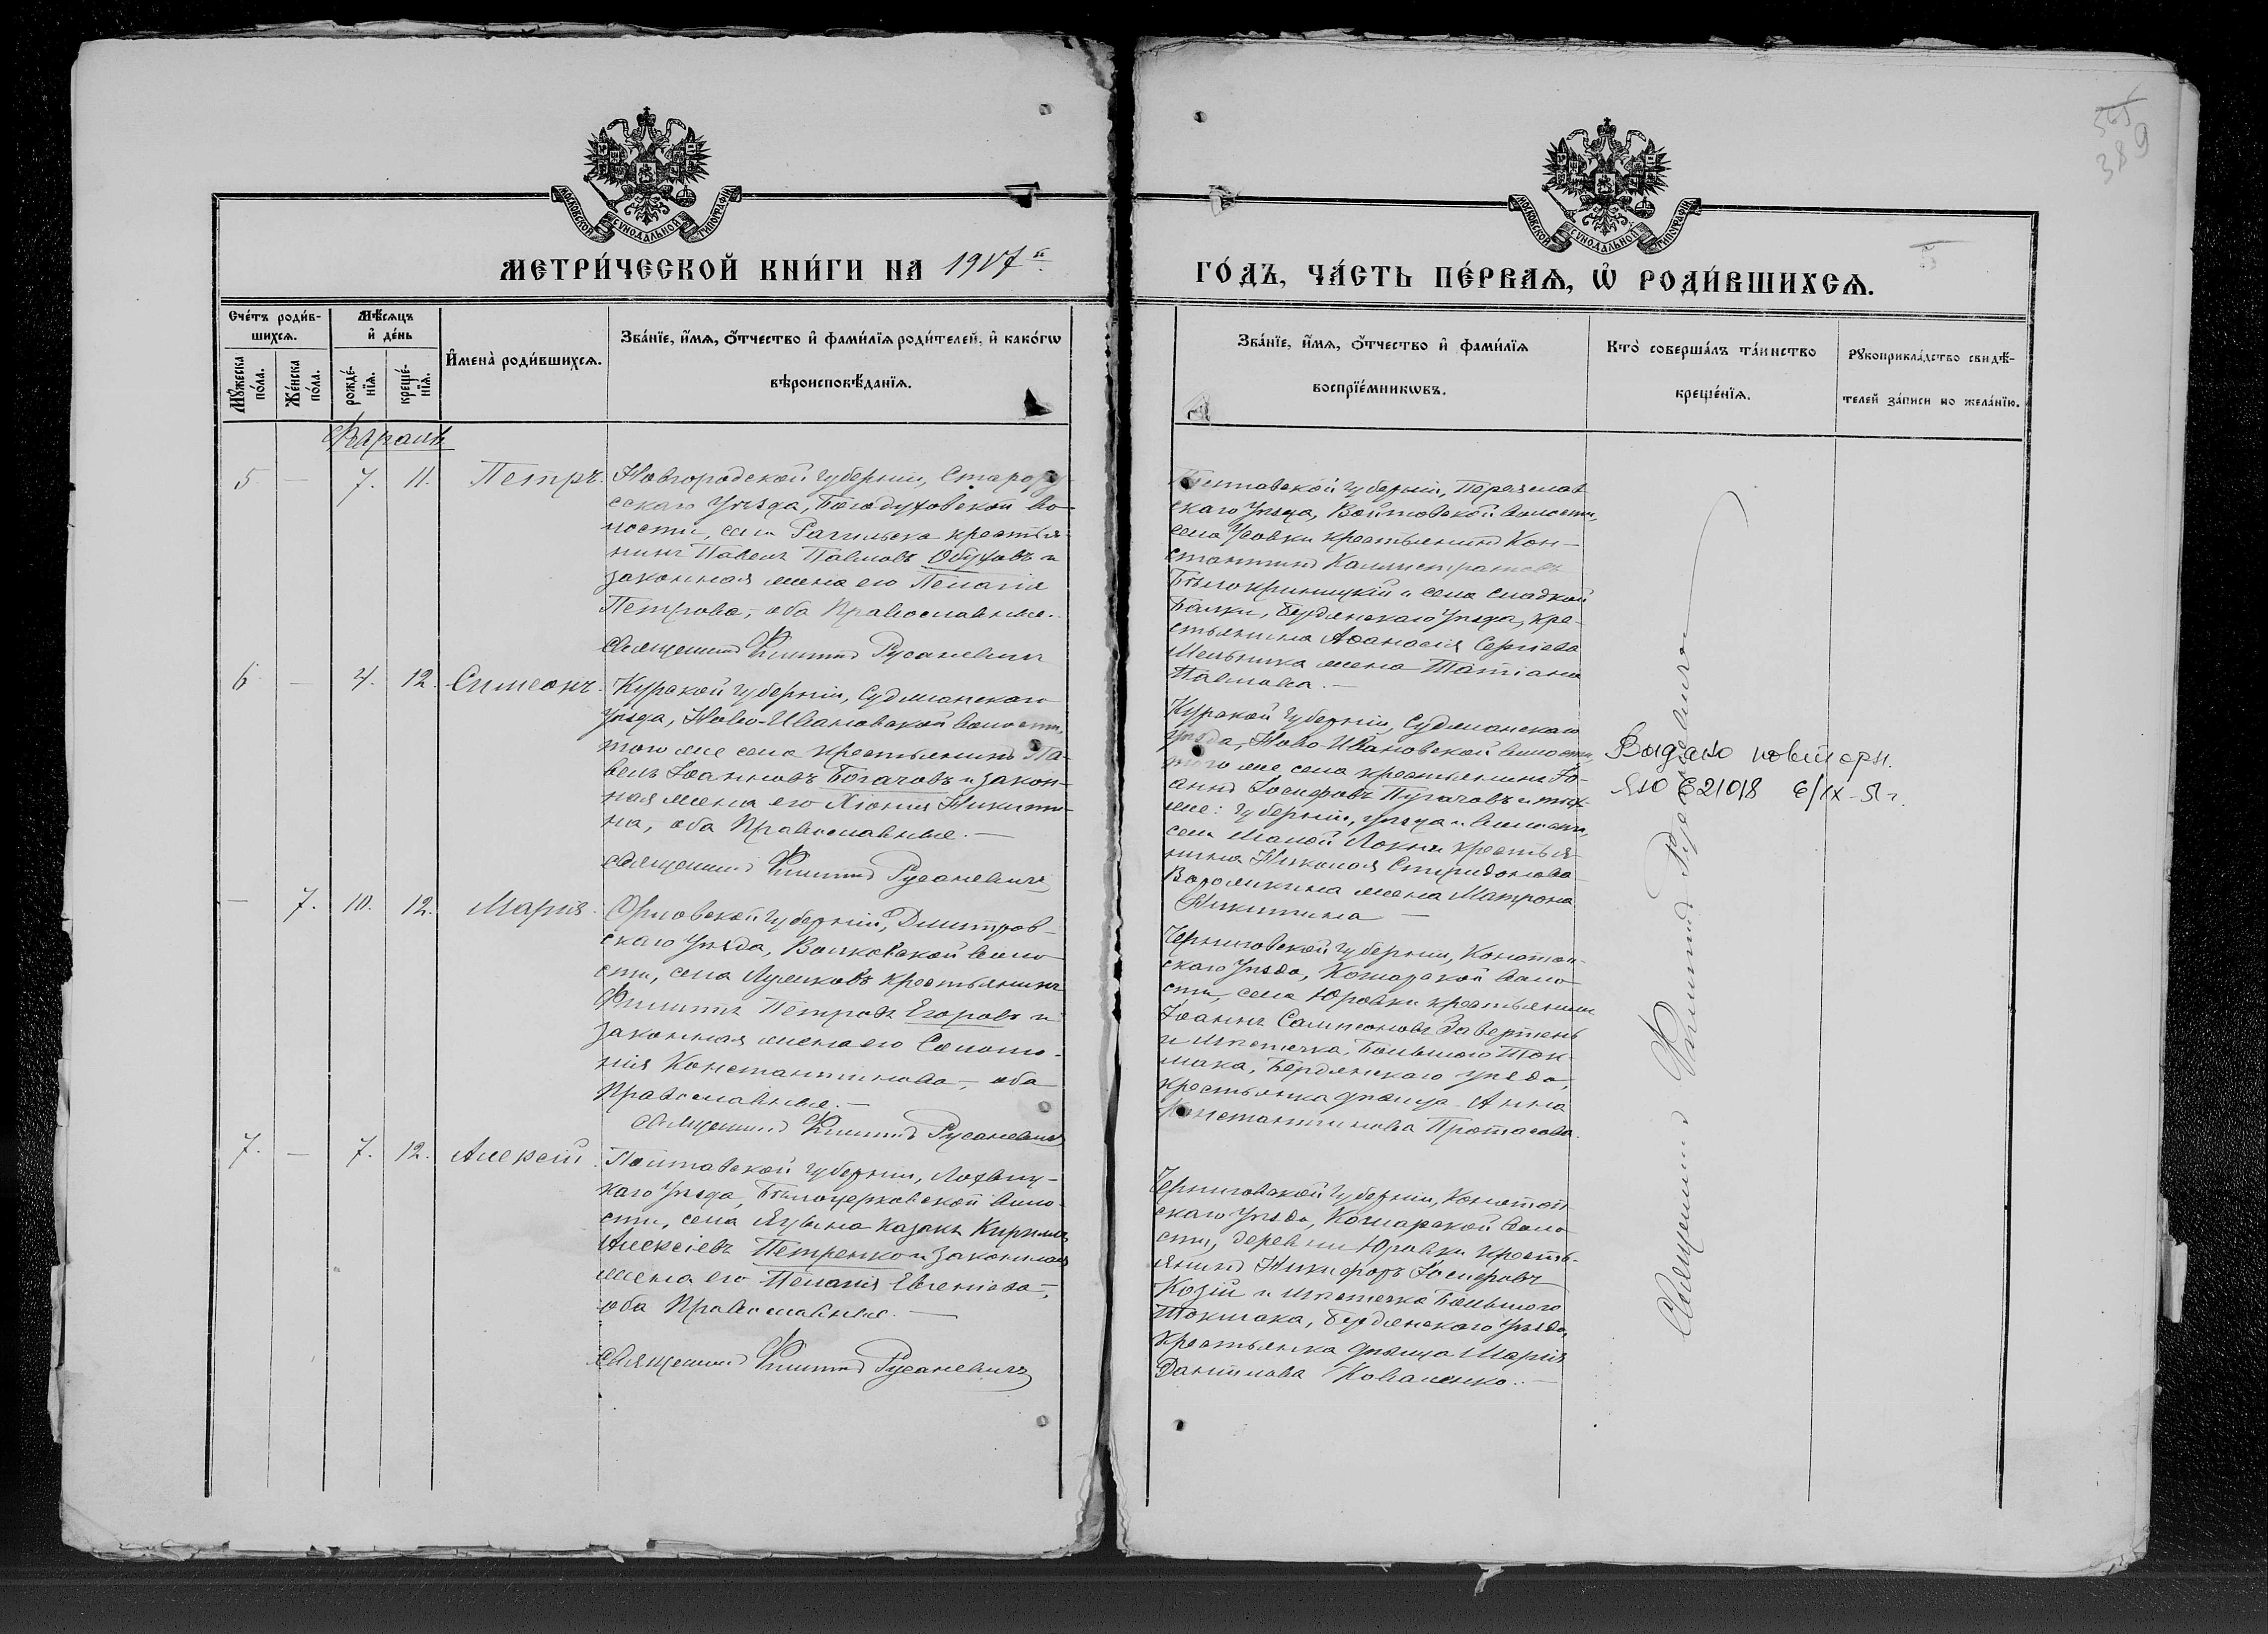 565
389
МОСКОВСКОЙ СУНОДАЛЬНОЙ ТИПОГРАФІИ
МЕТРИ́ЧЕСКОЙ КНИ́ГИ НА 1917й
Сче́тъ роди́в-
шихсѧ.
Мꙋ́жеска
по́ла.
Же́нска
по́ла.
Мѣ́сѧцъ
и҆ де́нь
рожде́-
нїѧ.
креще́-
нїѧ.
И҆мена̀ роди́вшихсѧ.
Зва́нїе, и҆́мѧ, ѻ҆́тчество и҆ фами́лїѧ роди́телей, и҆ како́гѡ
вѣроисповѣ́данїѧ.
Февраль
5. — 7. 11. Петръ.
Новгородской губерніи, Старору-
сскаго Уѣзда, Богодуховской во-
лости, села крестья-
нинъ Павелъ Павловъ Обуховъ и
законная жена его Пелагія
Петрова, оба Православные.
Священникъ Филиппъ Русаневичъ
6 — 4. 12. Симеонъ.
Курской губерніи, Суджанскаго
Уѣзда, Ново-Ивановской волости,
того же села крестьянинъ Па-
велъ Іоанновъ Богачовъ и закон-
ная жена его Хіонія Никити-
на, оба Православные. —
Священникъ Филиппъ Русаневичъ
— 7. 10. 12. Марія.
Орловской губерніи, Дмитров-
скаго Уѣзда, Волковской воло-
сти, села крестьянинъ
Филиппъ Петровъ Егоровъ и
законная жена его Соломо-
нія Константинова, оба
Православные. —
Священникъ Филиппъ Русаневичъ
7. — 7. 12. Алексій.
Полтавской губерніи, Лохвиц-
каго Уѣзда, Бѣлоцерковской воло-
сти, села казакъ Кириллъ
Алексіевъ Петренко и законная
жена его Пелагія Евгеніева,
оба Православные. —
Священникъ Филиппъ Русаневичъ
МОСКОВСКОЙ СУНОДАЛЬНОЙ ТИПОГРАФІИ
5
ГО́ДЪ, ЧА́СТЬ ПЕ́РВАѦ, Ѡ҆ РОДИ́ВШИХСѦ.
Зва́нїе, и҆́мѧ, ѻ҆́тчество и҆ фами́лїѧ
воспрїе́мникѡвъ.
Кто̀ соверша́лъ та́инство
креще́нїѧ.
Рꙋкоприкла́дство свидѣ́-
телей за́писи по жела́нїю.
Полтавской губерніи, Переяслав-
скаго Уѣзда, Войтовской волости,
села Усовки крестьянинъ Кон-
стантинъ Каллистратовъ
Бѣлокриницкій и села Сладкой
Балки, Бердянскаго Уѣзда, кре-
стьянина Аѳанасія Сергіева
Мельника жена Татіана
Павлова. —
Курской губерніи, Суджанскаго
Уѣзда, Ново-Ивановской волости,
того же села крестьянинъ Іо-
аннъ Іосифовъ Пугачовъ и тѣх-
же: губерніи, уѣзда и волости,
села Малой Локни крестья-
нина Николая Спиридонова
Воромикина жена Матрона
Никитина —
Черниговской губерніи, Конотоп-
скаго Уѣзда, Кошарской воло-
сти, села Юровки крестьянинъ
Іоаннъ Сампсоновъ Завертень
и мѣстечка, Большого Ток-
мака, Бердянскаго уѣзда,
крестьянка дѣвица Анна
Константинова Протасова.
Черниговской губерніи, Конотоп-
скаго Уѣзда, Кошарской воло-
сти, деревни Юровки кресть-
янинъ Никифоръ Іосифовъ
Козій и мѣстечка Большого
Токмака, Бердянскаго Уѣзда,
крестьянка дѣвица Марія
Даниилова Коваленко. —
Священникъ Филиппъ Русаневичъ
Видано повторн.
ЯЮ 621018 6/IX-51 г.